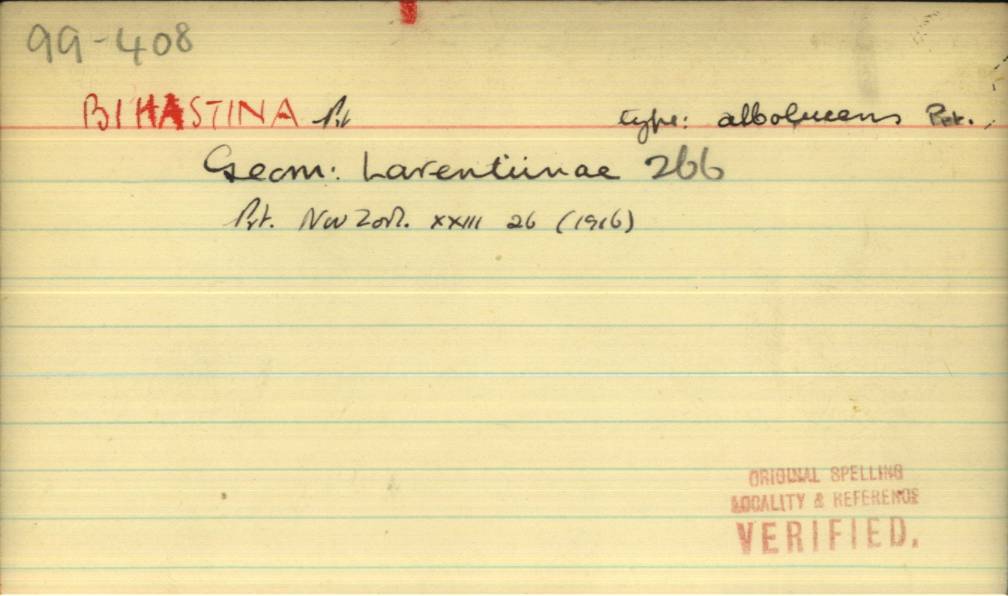 99-408
BIHASTINA Prt type: albolucens Prt.
Geom: Larentiinae 266
Prt. Nov Zool. XXIII 26 (1916)
ORIGINAL SPELLING
LOCALITY & REFERENCE
VERIFIED.